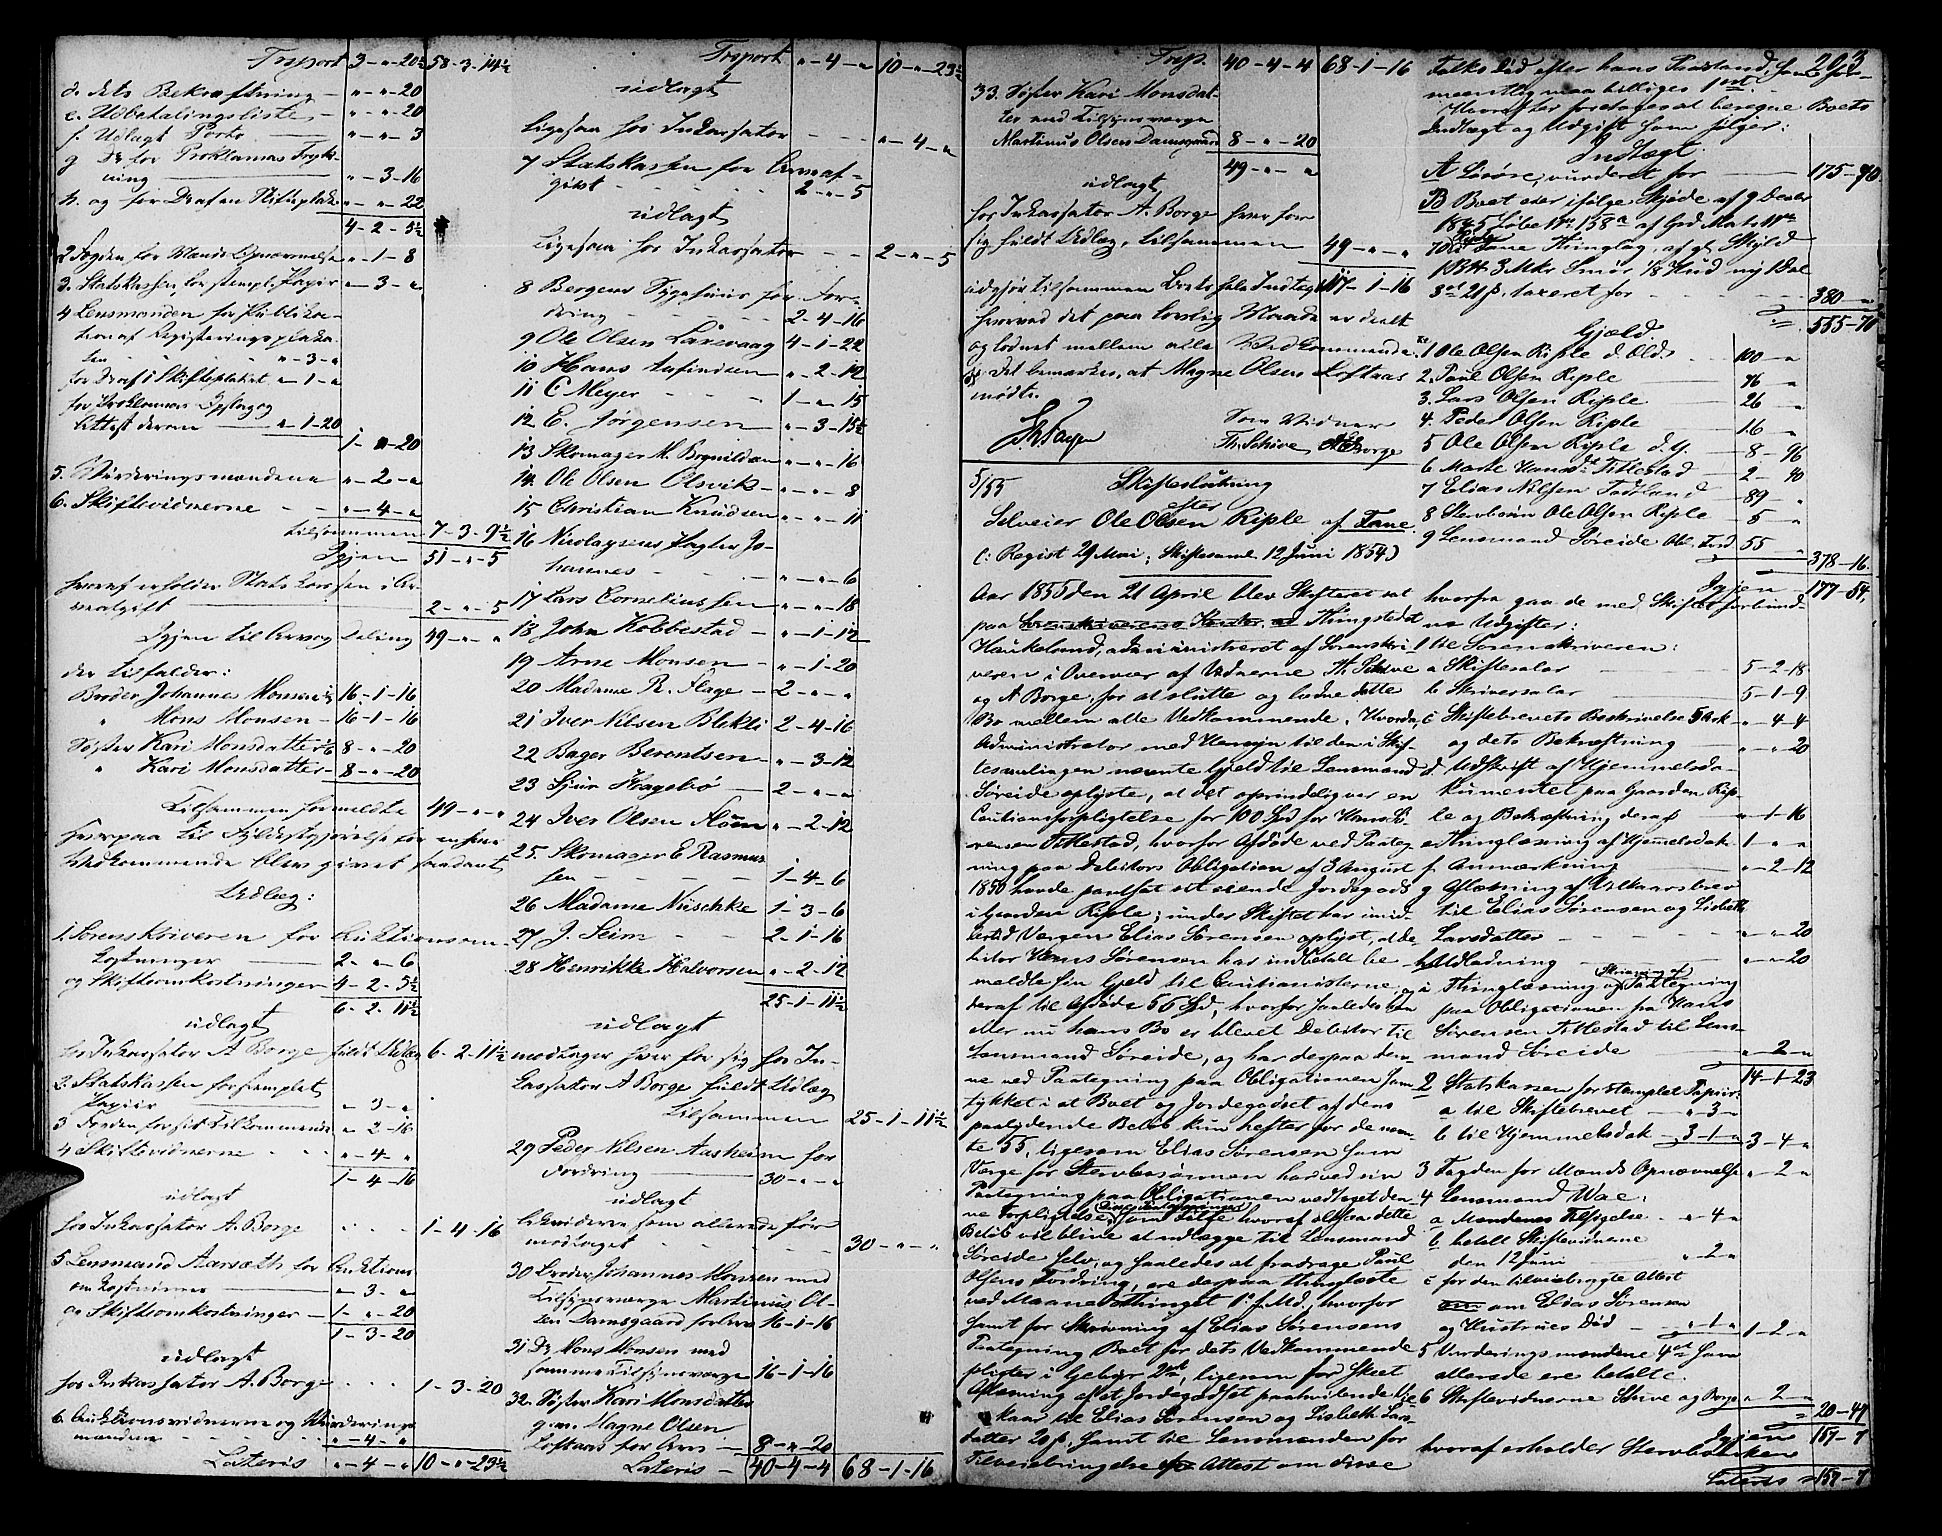 Trsport 3-"-20½ 58-3-14½
d. dets Bekræftning - "-"-20
e. Udbetalingsliste, - "-"-20
f. Udlagt Porto - "-"-3
g Do for Proklamas Tryk-
ning - "-3-16
h. og for Draf en Skifteplakat "-"-22
4-2-5½
2 Fogden for Mænds Opnævnelse "-1-8
3. Statskassen for stempl. Papir "-3-"
4 Lensmanden for Publika-
tion af Registeringsplaka-
ten "-3-"
for Draf i Skifteplakat "-1-"
for Proklamas Opslag og
Attest derom "-1-20
1-"-20
5. Vurderingsmændene "-2-"
6. Skiftevidnerne - - "-4-"
tilsammen 7-3-9½
Igjen 51-"-5
hvoraf erholder Stats Kassen i Ar-
veafgift 2-"-5
Igjen til Arv og Deling 49-"-"
der tilfalder:
Broder Johannes Monsen 16-1-16
" Mons Monsen - 16-1-16
Søster Kari Monsdatter 8-"-20
" Kari Monsdatter - 8-"-20
Tilsammen formeldte 49-"-"
hvorpaa til Fyldestgjørelse for enhver
Vedkommende blev gjort saadant
Udlæg:
1. Sorenskriveren for Auktionsom-
kostninger 2-"-6
og Skifteomkostninger 4-2-5½
6-2-11½
udlagt
hos Inkassator A Borge fuldt Udlæg 6-2-11½
2. Statskassen for stemplet
Papir "-3-"
3 Fogden for sit Tilkommende "-2-16
4 Skiftevidnerne - - "-4-"
1-4-16
udlagt
hos Inkassator A. Borge - - - 1-4-16
5 Lensmand Aarsæth for Auktions
omkostninger "-3-"
og Skifteomkostninger - 1-"-20
1-3-20
udlagt
hos Inkassator A. Borge - - - 1-3-20
6. Auktionsvidnerne og Vurderings
mændene "-4-"
Lateris "-4-" 10-"-23½
Trsport "-4-" 10-"-23½
udlagt
Ligesaa hos Inkassator - - - "-4-"
7 Statskassen for Arveaf-
gift - - - 2-"-5
udlagt
Ligesaa hos Inkassator - - 2-"-5
8 Bergens Sygehuus for For-
dring - - - 2-4-16
9 Ole Olsen Lärevaag 4-1-22
10 Hans Anfindsen "-2-12
11 C Meyer - - - 1-"-15
12 E. Jørgensen - "-3-15½
13 Skomager M. Brynildsen "-"-16
14. Ole Olsen Olsvik - "-"-8
15 Christian Knudsen "-"-11
16 Nicolaysens Pagter Jo-
hannes - - - "-"-6
17 Lars Corneliussen "-"-18
18 John Kobbestad - "-1-12
19 Arne Monsen - "-1-20
20 Madame R. Flage - 2-"-"
21 Iver Nilsen Blekli 2-4-16
22 Bager Berentsen "-3-12
23 Sjur Hagebø 2-"-"
24 Iver Olsen Fløen "-2-12
25. Skomager E. Rasmus
sen - - - 1-4-6
26 Madame Nitschke 1-3-6
27 J. Seim - - 2-1-16
28 Henrikke Halvorsen "-2-12
25-1-11½
udlagt
modtager hver for sig hos In-
kassator A Borge fuldt Udlæg
Tilsammen 25-1-11½
29 Peder Nilsen Aasheim for
Fordring 30-"-"
udlagt
likvideres som allerede før
modtaget - - - 30-"-"
30 Broder Johannes Monsen med
Tilsynsværge Martinus Ol-
sen Damsgaard for Arv 16-1-16
31 Do Mons Monsen med
samme Tilsynsværge 16-1-16
32. Søster Kari Monsdatter
g. m. Magne Olsen
Loftaas for Arv 8-"-20
Lateris - 40-4-4 68-1-16
Trsp. 40-4-4 68-1-16
33. Søster Kari Monsdat-
ter med Tilsynsværge
Martinus Olsen Damsgaard 8-"-20
49-"-"
udlagt
hos Inkassator A. Borge hver for
sig fuldt Udlæg, tilsammen 49-"-"
udgjør tilsammen Boets hele Indtægt 117-1-16
hvorved det paa lovlig Maade er deelt
og lodnet mellem alle Vedkommende.
Det bemærkes, at Magne Olsen Loftaas
mødte.
Som Vidner
Th. Schive A Borge
5/55 Skifteslutning
efter
Selveier Ole Olsen Riple af Fane
(: Regist 29 Mai, Skiftesaml 12 Juni 1854)
Aar 1855 den 21 April blev Skifteret sat
paa Sorenskriverens Kontor, ad Thingstedet
Haukeland, administreret af Sorenskri-
veren i Overvær af Vidnerne Th. Schive
og A Borge, for at slutte og lodne dette
Bo mellem alle Vedkommende. Hvorda
Administrator med Hensyn til den i Skif-
tesamlingen nævnte Gjeld til Lensmand
Søreide oplyste, at det oprindelig var en
Cautionsforpligtelse for 100 Spd for Hans Sø-
rensen Titlestad, hvorfor Afdøde ved Paateg-
ning paa Debitors Obligation af 3 August
1850 havde pantsat sit eiende Jordegods
i Gaarden Riple; under Skiftet har imid-
lertid Værgen Elias Sørensen oplyst, at De-
bitor Hans Sørensen har indbetalt be-
meldte sin Gjeld til Cautionisterne, og
deraf til Afdøde 55 Spd, hvorfor saaledes han
eller nu hans Bo er blevet Debitor til
Lensmand Søreide, og har despaa den-
ne ved Paategning paa Obligationen sam-
tykket i at Boet og Jordegodset af dens
paalydende Beløb kun hefter for de nævn-
te 55, ligesom Elias Sørensen som
Værge for Stervbosønnen har ved sin
Paategning paa Obligationen vedtaget den-
ne Forpligtelse, som Følge hvoraf altsaa dette
Beløb vil blive at udlægge til Lensmand
Søreide selv, og saaledes at fradrage Paul
Olsens Fordring, ere desuden thinglæste
ved Maanedsthinget 1ste f. Md., hvorfor
samt for Skrivning af Elias Sørensens
Paategning Boet for dets Vedkommende
pligter i Gebyr 2 ort, ligesom for skeet
Aflæsning af et Jordegodset paahvilende Vil-
kaar til Elias Sørensen og Lisbeth Lars-
datter 20 s, samt til Lensmanden for
Tilveiebringelse af Attest om disse
203
Folks Død efter hans Paastand, som for-
meentlig maa billiges 1 ort. -
Hvorefter foretoges at beregne Boets
Indtægt og Udgift som følger:
Indtægt.
A Løsøre, vurderet for 175-70
B Boet eier ifølge Skjøde af 9 Decbr
1845 Løbe No 158a af God Mats No
70 Riple Fane Thinglag, af gl. Skyld
1 Pd 3 Mkr Smør 1/8 Hud ny 1 Dal
3 ort 21 s. taxeret for - - 380-"
555-70
Gjæld
1 Ole Olsen Riple d. Æld. - 100-"
2. Paul Olsen Riple 76-"
3. Lars Olsen Riple 26-"
4. Peder Olsen Riple - 16-"
5 Ole Olsen Riple d. Y. - 8-96
6 Marte Hansdr Titlestad 2-40
7 Elias Nilsen Fadland - 89-"
8 Stervbosøn Ole Olsen Riple - 5-"
9 Lensmand Søreide 55-"
378-16
Igjen 177-54,
hvorfra gaa de med Skiftet forbund-
ne Udgifter:
1 til Sorenskriveren:
a Skiftesalær 5-2-18
b Skriversalær 5-1-9
c Skiftebrevets Beskrivelse 5 Ark "-4-4
og dets Bekræftning "-"-20
d. Udskrift af Hjemmelsdo-
kumentet paa Gaarden Rip-
le og Bekræftning deraf "-1-16
e Thinglæsning af Hjemmelsdok. 1-"-"
f. Anmærkning "-2-12
g Aflæsning af Vilkaarsbrev
til Elias Sørensen og Lisbeth
Larsdatter - - - "-"-20
h Udlodning "-"-20
i Thinglæsning og Skrivning af Paategning
paa Obligationen fra Hans
Sørensen Titlestad til Lens-
mand Søreide "-2-"
14-1-23
2 Statskassen for stemplet Papir:
a til Skiftebrevet "3-"
b til Hjemmelsdok 3-1-" 3-4-"
3 Fogden for Mænds Opnævnelse "-2-"
4 Lensmand Wae:
a Mændenes Tilsigelse - "-4-"
b betalt Skiftevidnerne
den 12 Juni "-2-"
c for den tilveiebragte Attest
om Elias Sørensen
og Hustrues Død - "-1-" 1-2-"
5 Vurderingsmændene 4 ort som
allerede ere betalte.
6 Skiftevidnerne Schive og Borge "-2-"
20-47
Igjen 157-7
hvoraf erholder Stervboenken
Lateris 157-7